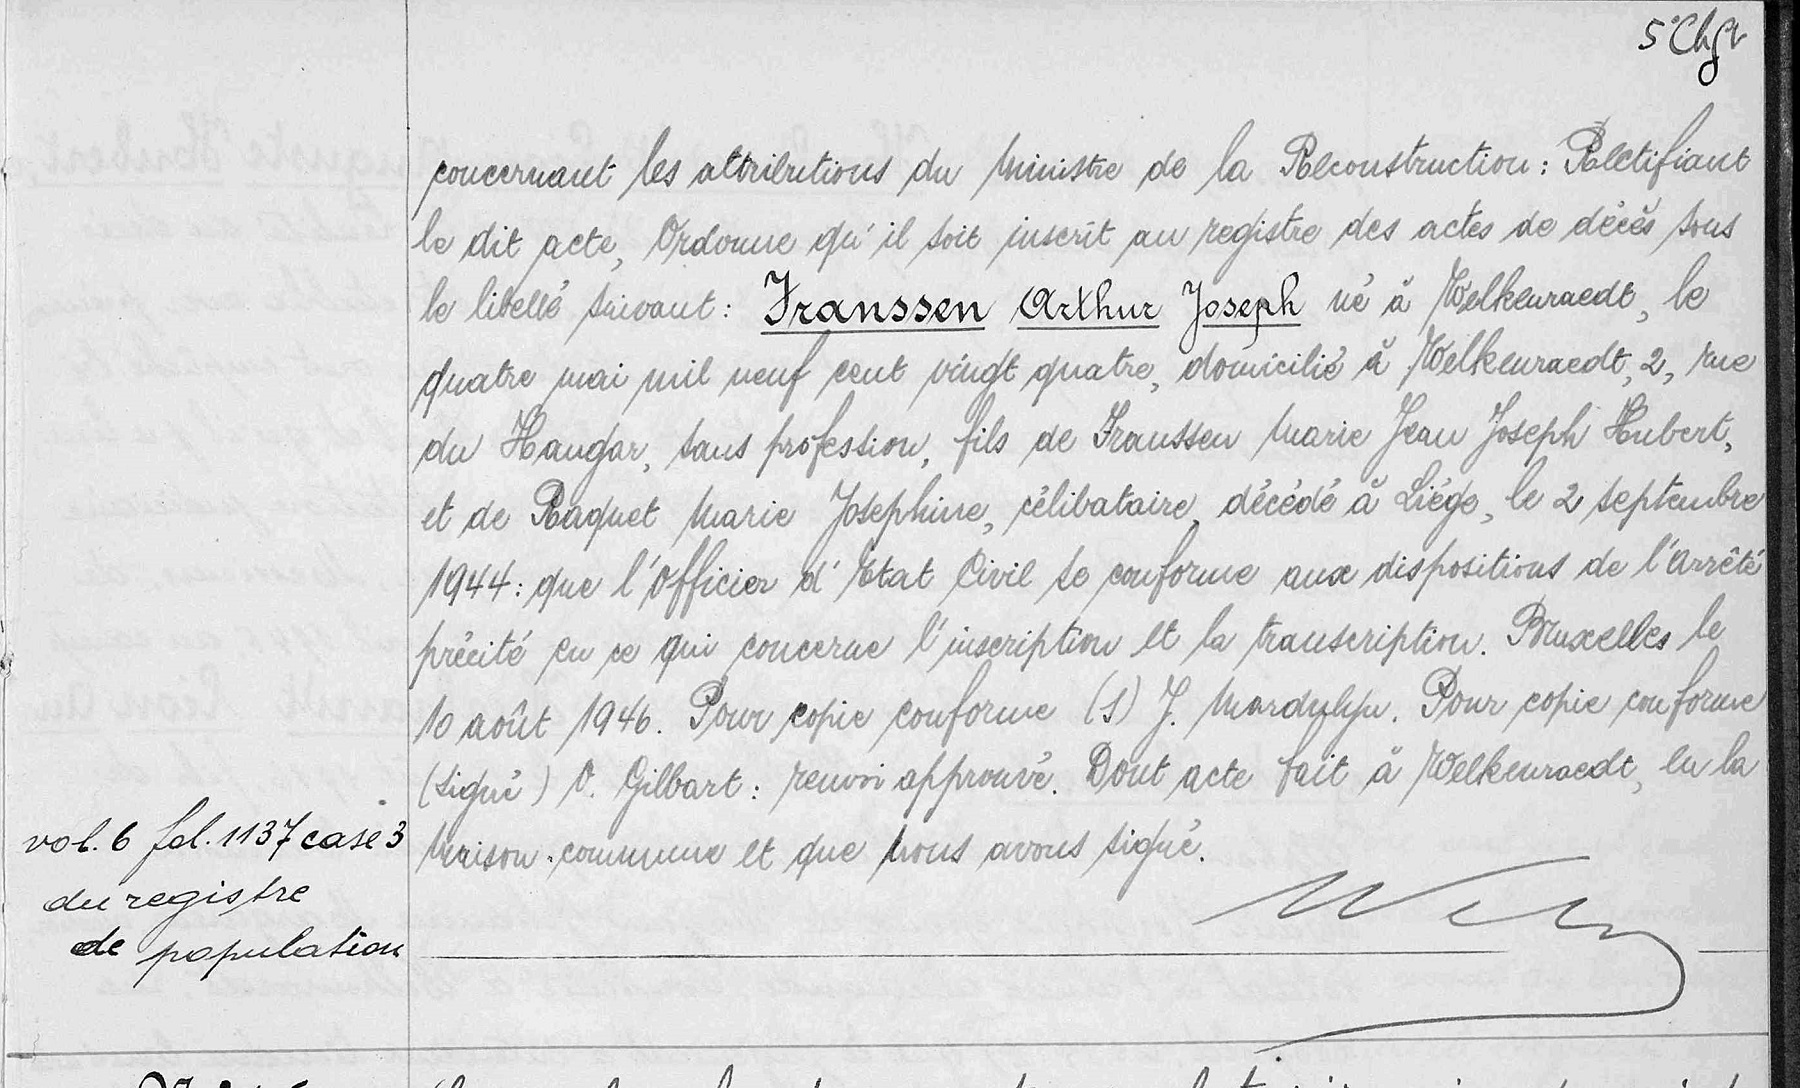 concernant les attributions du Ministre de la Reconstruction : Rectifiant
le dit acte, Ordonne qu'il soit inscrit au registre des actes de décès sous
le libellé suivant : Franssen Arthur Joseph né à Welkenraedt, le
quatre mai mil neuf cent vingt quatre, domicilié à Welkenraedt, 2, rue
du Hangar, sans profession, fils de Franssen Marie Jean Joseph Hubert,
et de Raquet Marie Joséphine, célibataire, décédé à Liége, le 2 septembre
1944 : que l'Officier d'Etat Civil se conforme aux dispositions de l'arrêté
précité en ce qui concerne l'inscription et la transcription. Bruxelles le
10 août 1946. Pour copie conforme (S) J. Pour copie conforme
(signé) O. Gilbart : renvoi approuvé. Dont acte fait à Welkenraedt, en la
vol. 6 fol. 1137 case 3
du registre
de population
Maison communne et que nous avons signé.